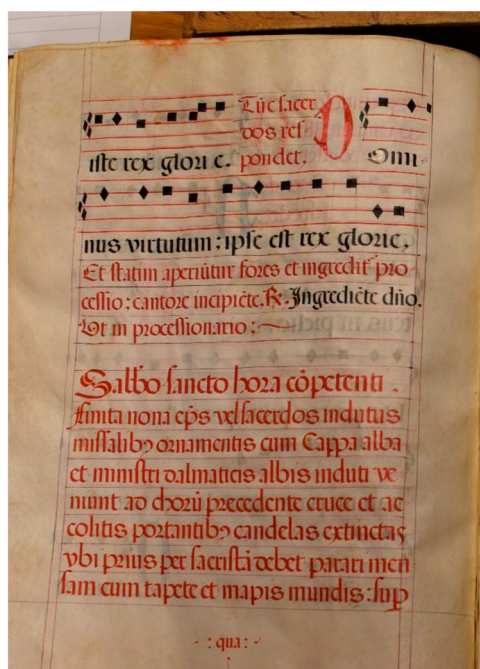 Tūc sacer
dos res
iste rex glorie. pondet. Domi-
nus virtutum : ipse est rex glorie.
Et statim aperiūtur fores et ingredit̄ pro
cessio : cantore incipiēte. ℟. Ingrediēte dn̄o.
Vt in processionario :
Sabbō sancto hora cōpetenti .
finita nona ep̄s vel sacerdos indutus
missalibꝰ ornamentis cum Cappa alba
et ministri dalmaticis albis induti ve
niunt ad chorū precedente cruce et ac
colitis portantibꝰ candelas extinctas
vbi prius per sacristā debet parari men
sam cum tapete et mapis mundis : sup̄
- : qua : -